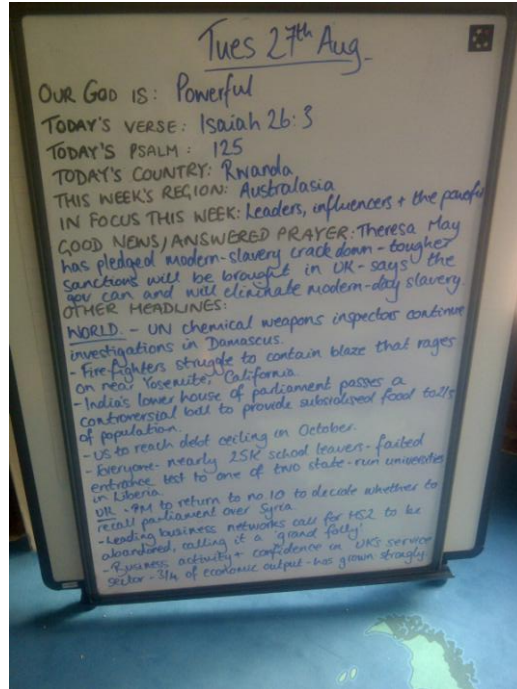 Tues 27th Aug.
OUR GOD IS: Powerful
TODAY'S VERSE: Isaiah 26:3
TODAY'S PSALM: 125
TODAY'S COUNTRY: Rwanda
THIS WEEK'S REGION: Australasia
IN FOCUS THIS WEEK: Leaders, influencers + the powerful
GOOD NEWS/ANSWERED PRAYER: Theresa May
has pledged modern-slavery crack down - tougher
sanctions will be brought in UK - says the
gov can and will eliminate modern-day slavery.
OTHER HEADLINES:
WORLD. - UN chemical weapons inspectors continue
investigations in Damascus.
- Firefighters struggle to contain blaze that rages
on near Yosemite, California.
- India's lower house of parliament passes a
controversial bill to provide subsidised food to 2/3
of population.
- US to reach debt ceiling in October.
- Everyone - nearly 25K school leavers - failed
entrance test to one of two state-run universities
in Liberia.
UK - PM to return to no.10 to decide whether to
recall parliament over Syria.
- Leading business networks call for HS2 to be
abandoned, calling it a 'grand folly'
- Business activity + confidence in UK's service
sector - 3/4 of economic output - has grown strongly